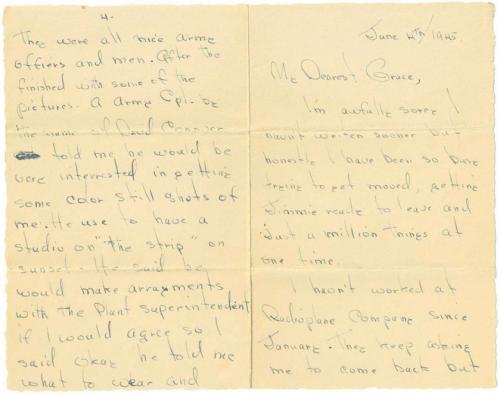 4.
They were all nice army
officers and men. After the
finished with some of the
pictures. A army Cpl. by
the name of David Conover
told me he would be
very interested in getting
some color still shots of
me. He use to have a
studio on "the strip" on
sunset. He said he
would make arrangments
with the Plant superintendent
if I would agree so I
said okay he told me
what to wear and
June 4th/1945
My Dearest Grace,
I'm awfully sorry I
havn't writen sooner but
honestly I have been so busy
trying to get moved, getting
Jimmie ready to leave and
just a million things at
one time.
I havn't worked at
Radioplane Company since
January. They keep asking
me to come back but